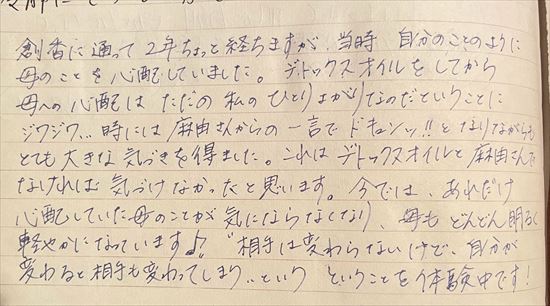 創香に通って2年ちょっと経ちますが、当時 自分のことのように
母のことを心配していました。デトックスオイルをしてから
母への心配は ただの 私の ひとりよがりなのだということに
ジワジワ... 時には 麻由さんからの 一言で ドキュンッ!! と なりながらも
とても 大きな 気づきを得ました。これは デトックスオイルと 麻由さんで
なければ 気づけなかったと思います。今では、あれだけ
心配していた母のことが 気にならなくなり、母も どんどん 明るく
軽やかになっています♪ "相手は変わらないけど、自分が
変わると相手も変わってしまう" という ということを 体験中です!